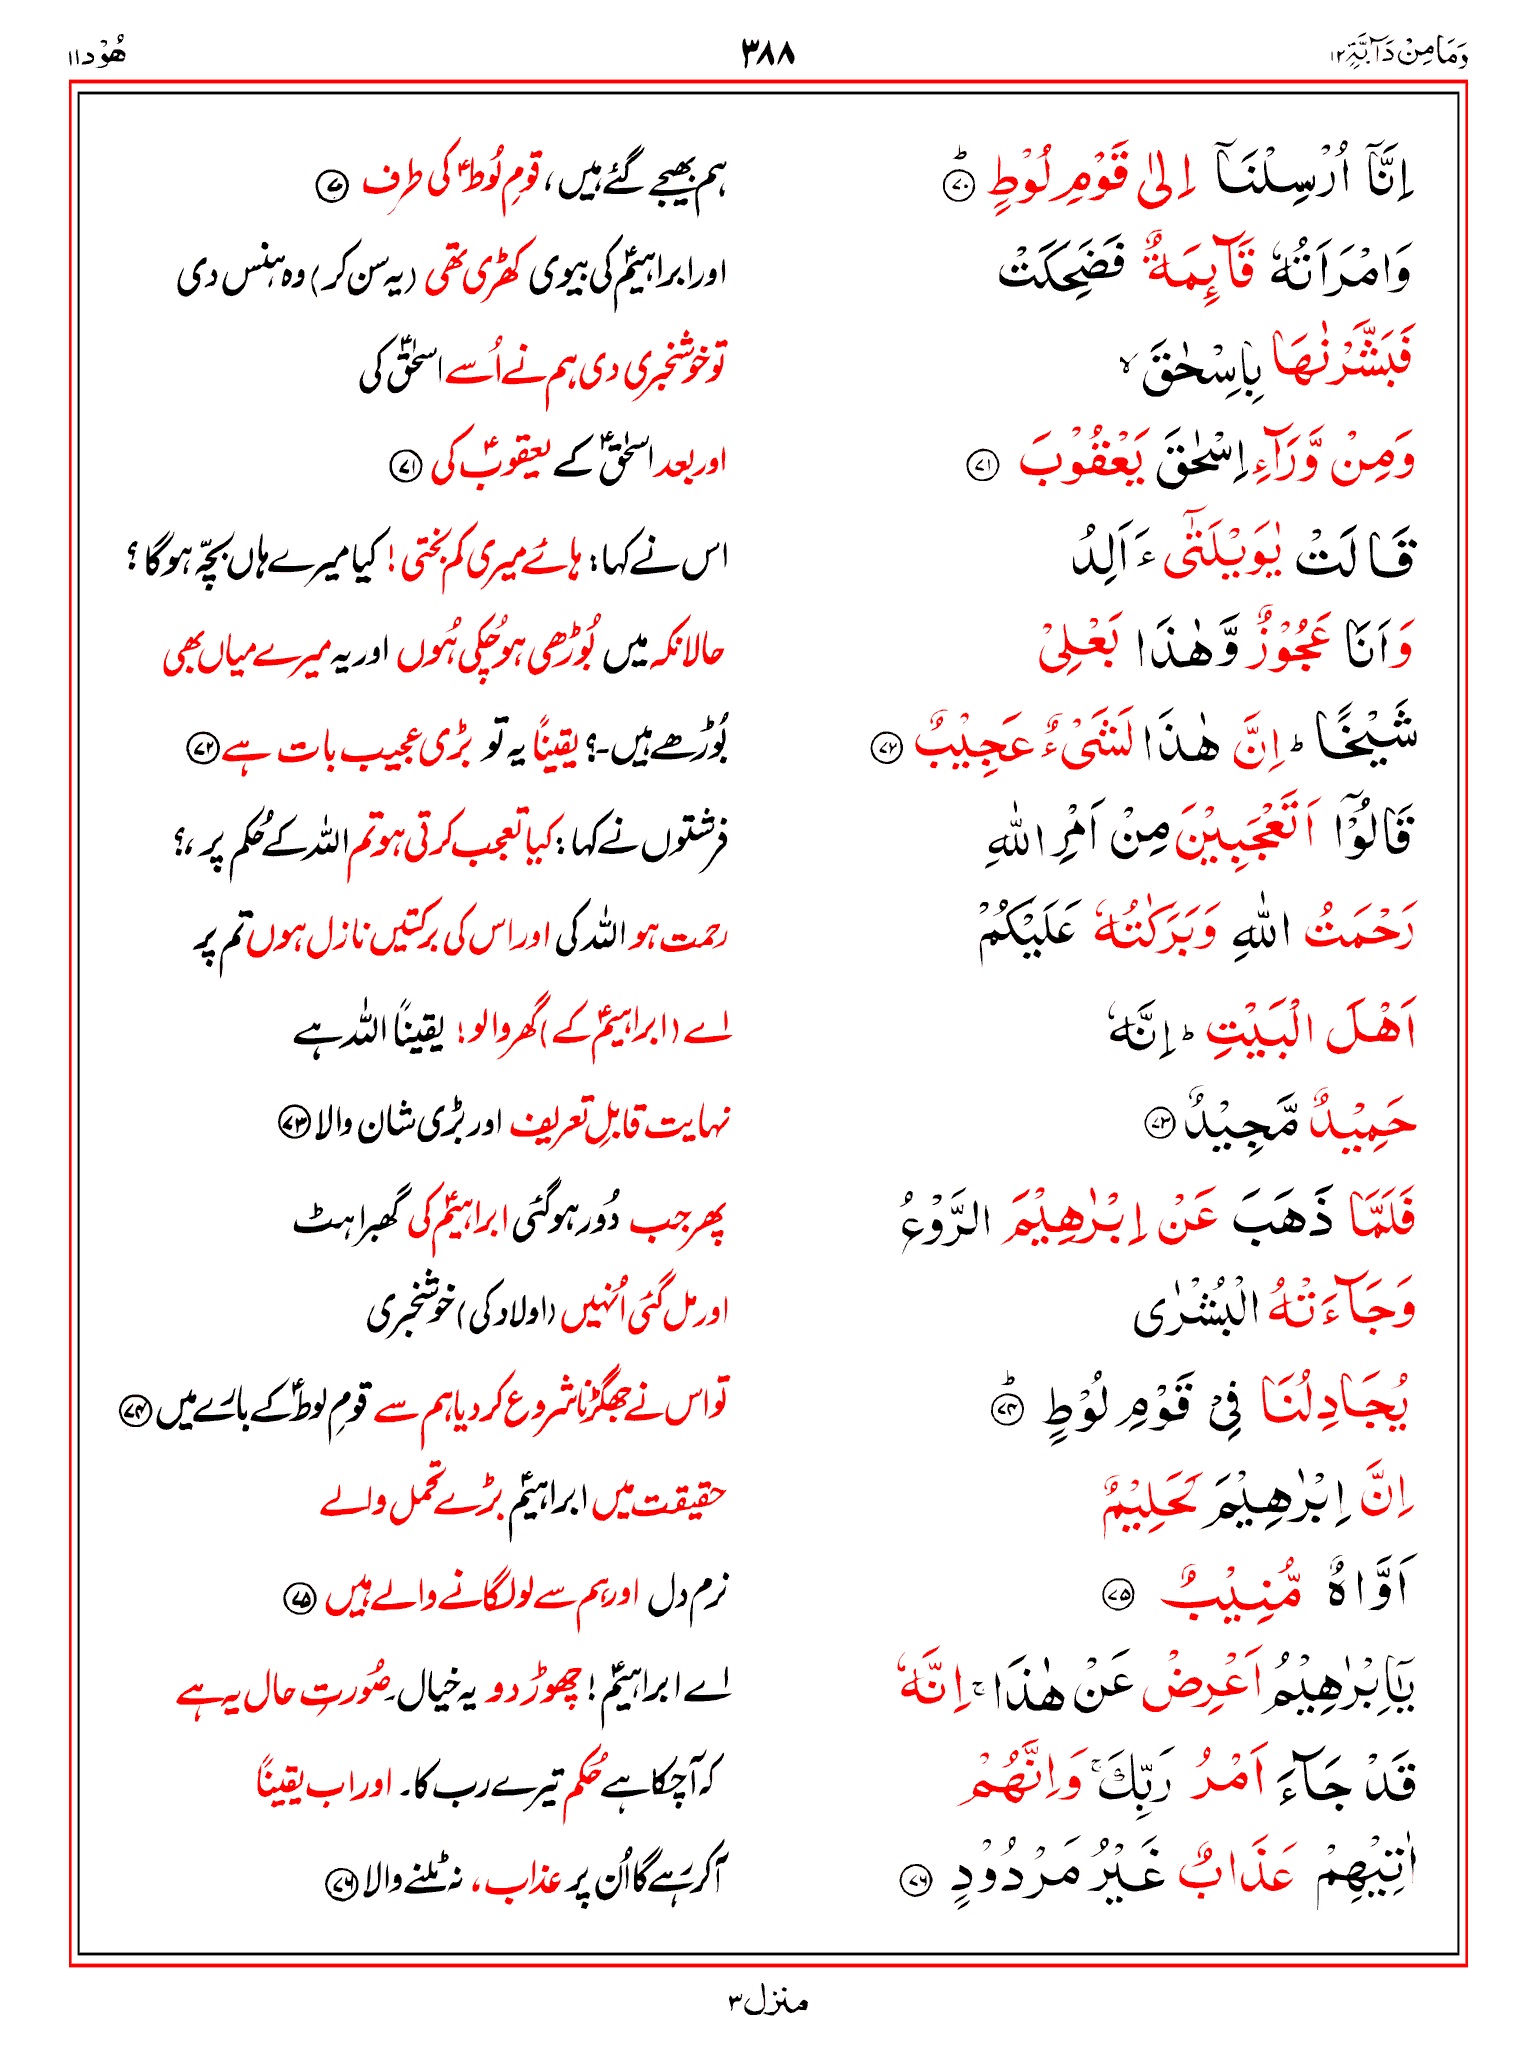 وَمَا مِنْ دَآبَّةٍ ۱۲
۳۸۸
هُوْد ۱۱
اِنَّاۤ اُرْسِلْنَاۤ اِلٰى قَوْمِ لُوْطٍ ؕ ﴿۷۰﴾
ہم بھیجے گئے ہیں، قومِ لُوطؑ کی طرف ﴿۷۰﴾
وَامْرَاَتُهٗ قَآىِٕمَةٌ فَضَحِكَتْ
اور ابراہیمؑ کی بیوی کھڑی تھی (یہ سن کر) وہ ہنس دی
فَبَشَّرْنٰهَا بِاِسْحٰقَ ۙ
تو خوشخبری دی ہم نے اُسے اسحٰقؑ کی
وَمِنْ وَّرَآءِ اِسْحٰقَ يَعْقُوْبَ ﴿۷۱﴾
اور بعد اسحٰقؑ کے یعقوبؑ کی ﴿۷۱﴾
قَالَتْ يٰوَيْلَتٰٓى ءَاَلِدُ
اس نے کہا: ہائے میری کم بختی! کیا میرے ہاں بچّہ ہو گا؟
وَاَنَا عَجُوْزٌ وَّهٰذَا بَعْلِيْ
حالانکہ میں بُوڑھی ہو چُکی ہُوں اور یہ میرے میاں بھی
شَيْخًا ؕ اِنَّ هٰذَا لَشَيْءٌ عَجِيْبٌ ﴿۷۲﴾
بُوڑھے ہیں۔؟ یقیناً یہ تو بڑی عجیب بات ہے ﴿۷۲﴾
قَالُوْۤا اَتَعْجَبِيْنَ مِنْ اَمْرِ اللّٰهِ
فرشتوں نے کہا: کیا تعجب کرتی ہو تم اللہ کے حُکم پر،؟
رَحْمَتُ اللّٰهِ وَبَرَكٰتُهٗ عَلَيْكُمْ
رحمت ہو اللہ کی اور اس کی برکتیں نازل ہوں تم پر
اَهْلَ الْبَيْتِ ؕ اِنَّهٗ
اے (ابراہیمؑ کے) گھر والو! یقیناً اللہ ہے
حَمِيْدٌ مَّجِيْدٌ ﴿۷۳﴾
نہایت قابلِ تعریف اور بڑی شان والا ﴿۷۳﴾
فَلَمَّا ذَهَبَ عَنْ اِبْرٰهِيْمَ الرَّوْعُ
پھر جب دُور ہو گئی ابراہیمؑ کی گھبراہٹ
وَجَآءَتْهُ الْبُشْرٰى
اور مل گئی اُنہیں (اولاد کی) خوشخبری
يُجَادِلُنَا فِيْ قَوْمِ لُوْطٍ ؕ ﴿۷۴﴾
تو اس نے جھگڑنا شروع کر دیا ہم سے قومِ لوطؑ کے بارے میں ﴿۷۴﴾
اِنَّ اِبْرٰهِيْمَ لَحَلِيْمٌ
حقیقت میں ابراہیمؑ بڑے تحمل والے
اَوَّاهٌ مُّنِيْبٌ ﴿۷۵﴾
نرم دل اور ہم سے لو لگانے والے ہیں ﴿۷۵﴾
يٰۤاِبْرٰهِيْمُ اَعْرِضْ عَنْ هٰذَا ۚ اِنَّهٗ
اے ابراہیمؑ! چھوڑ دو یہ خیال۔ صُورتِ حال یہ ہے
قَدْ جَآءَ اَمْرُ رَبِّكَ ۚ وَاِنَّهُمْ
کہ آ چکا ہے حُکم تیرے رب کا۔ اور اب یقیناً
اٰتِيْهِمْ عَذَابٌ غَيْرُ مَرْدُوْدٍ ﴿۷۶﴾
آ کر رہے گا اُن پر عذاب، نہ ٹلنے والا ﴿۷۶﴾
منزل ۳